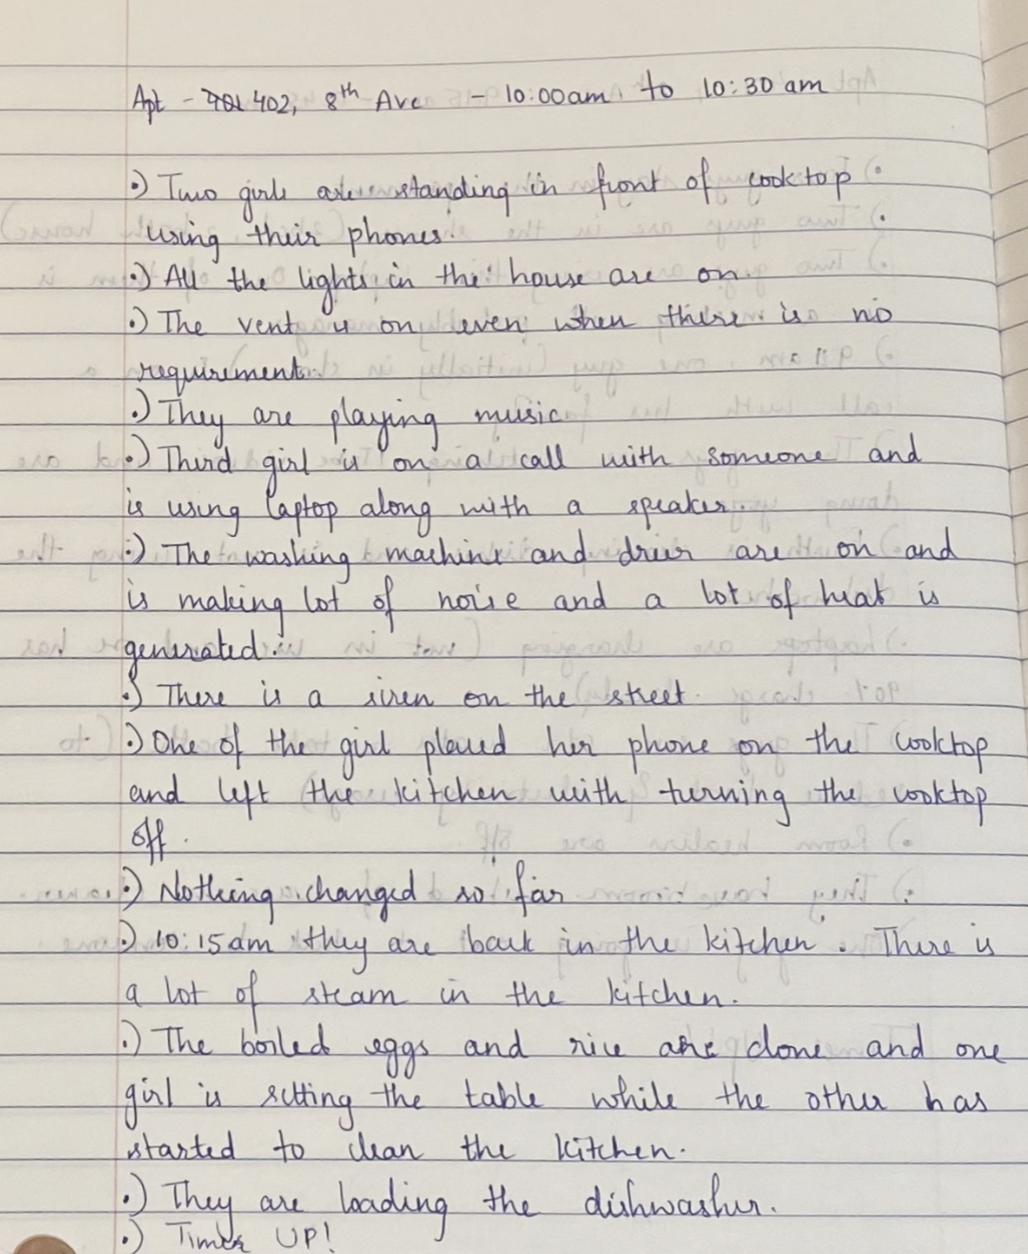 Apt - 402, 8th Ave - 10:00am to 10:30 am
•) Two girls are standing in front of cooktop
using their phones.
•) All the lights in the house are on
•) The vent is on even when there is no
requirement.
•) They are playing music
•) Third girl is on a call with someone and
is using laptop along with a speaker.
•) The washing machine and drier are on and
is making lot of noise and a lot of heat is
generated.
•) There is a siren on the street.
•) One of the girl placed her phone on the cooktop
and left the kitchen with turning the cooktop
off.
•) Nothing changed so far
•) 10:15am they are back in the kitchen. There is
a lot of steam in the kitchen.
•) The boiled eggs and rice are done and one
girl is setting the table while the other has
started to clean the kitchen.
•) They are loading the dishwasher.
•) Times UP!